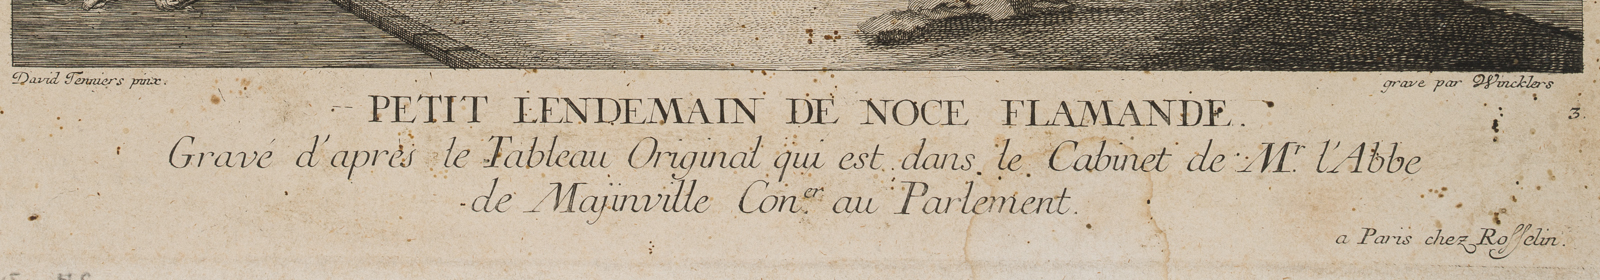 David Tenniers pinx.
grave par Wincklers
PETIT LENDEMAIN DE NOCE FLAMANDE.
3.
Gravé d'après le Tableau Original qui est dans le Cabinet de Mr. l'Abbe
de Majinville Con.er au Parlement.
a Paris chez Rosselin.